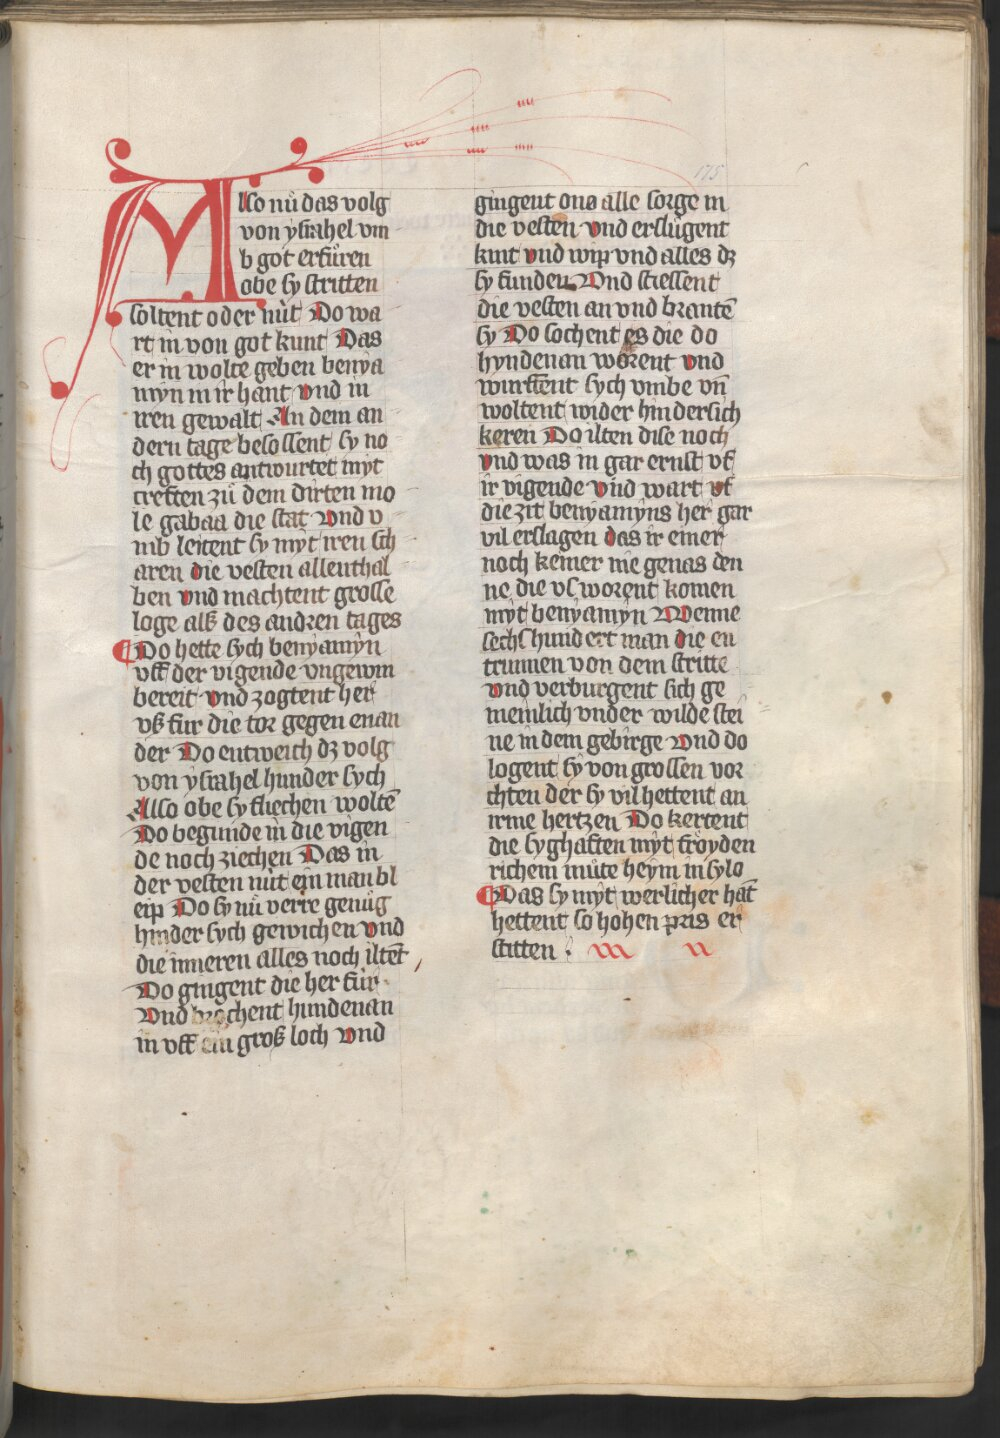 175
Also nuͦ das volg
von ysrahel vm
b got erfuͦren
obe sy stritten
soltent oder nuͤt Do wa
rt in von got kunt Das
er in wolte geben benya
myn in ir hant vnd in
iren gewalt An dem an
dern tage besossent sy no
ch gottes antwurtet myt
creften zuͦ dem dirten mo
le gabaa die stat Vnd v
mb leitent sy myt iren sch
aren die vesten allenthal
ben vnd machtent grosse
loge alß des andren tages
Do hette sych benyamyn
vff der vigende vngewin
bereit vnd zogtent her
vß fur die tor gegen enan
der Do entweich dz volg
von ysrahel hunder sych
Also obe sy fliechen woltē
Do begunde in die vigen
de noch ziechen Das in
der vesten nuͤt ein man bl
eip Do sy nuͦ verre genuͦg
hinder sych gewichen vnd
die inneren alles noch iltēt
Do gingent die her fuͤr
Vnd brochent hundenan
in vff ein groß loch vnd
gingent one alle sorge in
die vesten vnd erslugent
kint vnd wip vnd alles dz
sy funden Vnd stiessent
die vesten an vnd brantē
sy Do sochent es die do
hyndenan worent vnd
wurffent sych vmbe vn̄
woltent wider hindersich
keren Do ilten dise noch
vnd was in gar ernst vf
ir vigende vnd wart vf
die zit benyamyns her gar
vil erslagen das ir einer
noch keiner nie genas den
ne die vs worent komen
myt benyamyn Wenne
sechs hundert man die en
trunnen von dem stritte
vnd verburgent sich ge
meinlich vnder wilde stei
ne in dem gebirge Vnd do
logent sy von grossen vor
chten der sy vil hettent an
irme hertzen Do kertent
die syghaften myt froͤyden
richem muͦte heym in sylo
Das sy myt werlicher hāt
hettent so hohen pris er
stitten